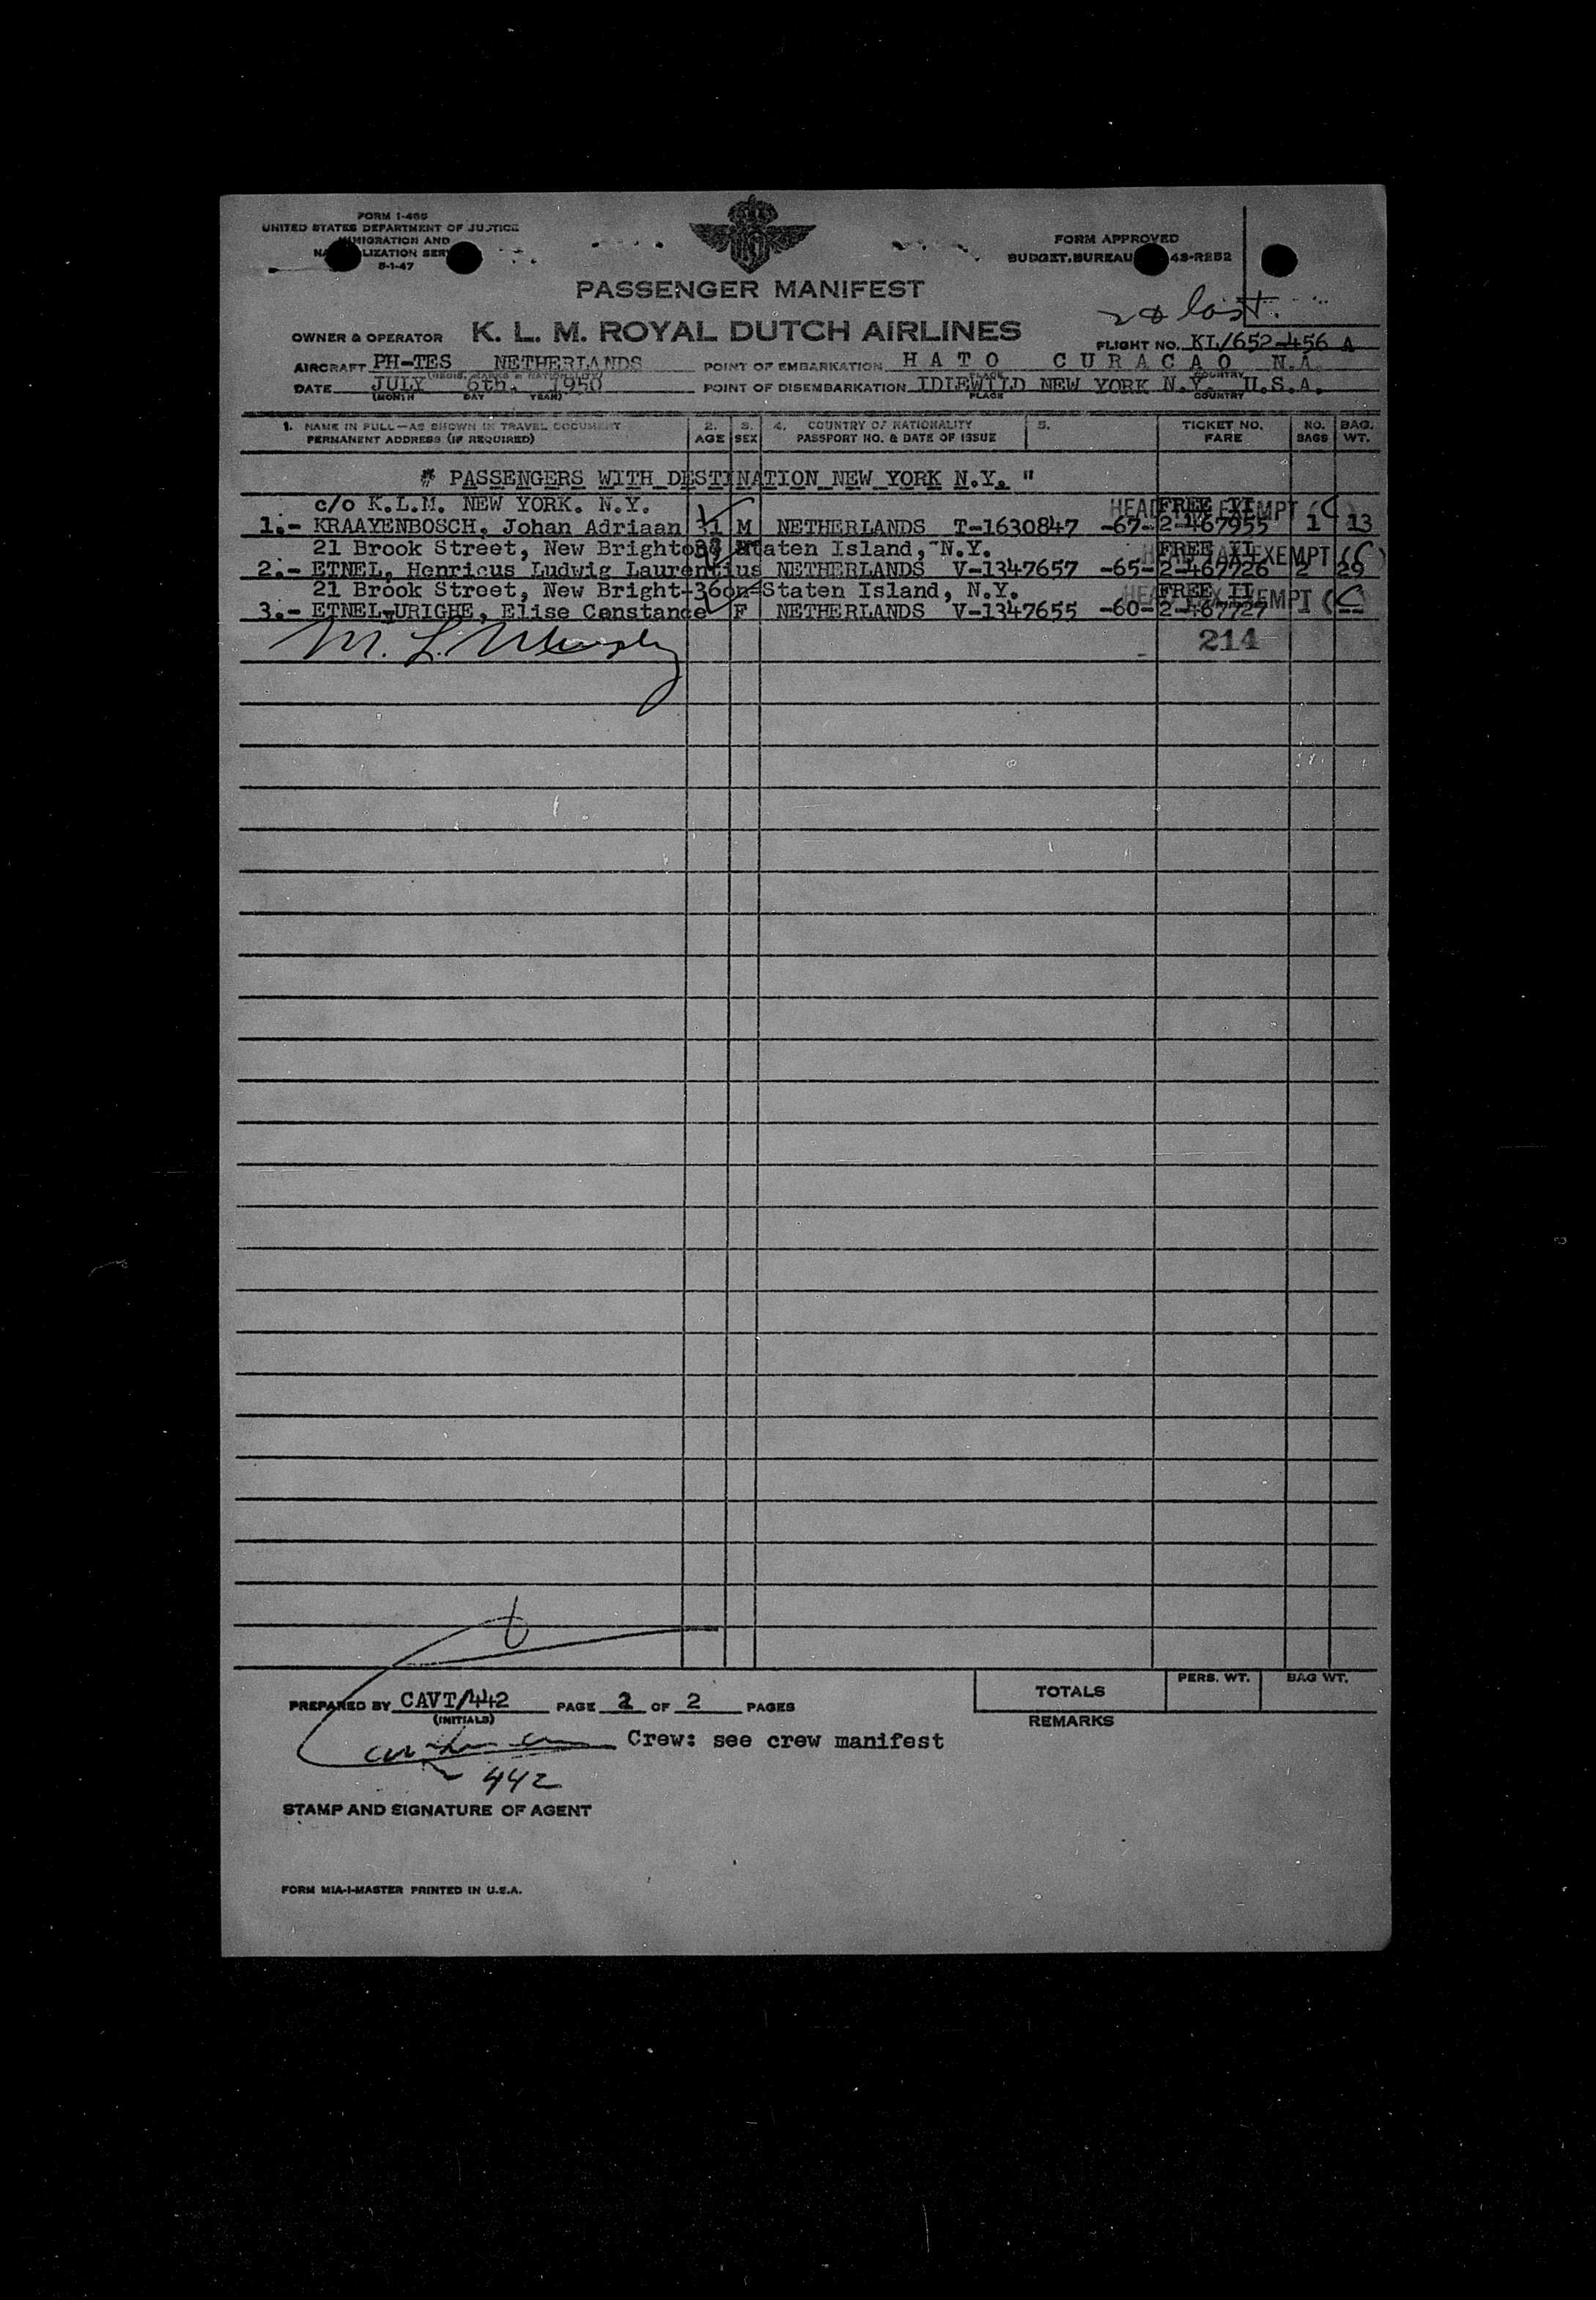 FORM I-466
UNITED STATES DEPARTMENT OF JUSTICE
IMMIGRATION AND
NATURALIZATION SERVICE
5-1-47
FORM APPROVED
BUDGET BUREAU 43-R252
PASSENGER MANIFEST
last.
OWNER & OPERATOR K. L. M. ROYAL DUTCH AIRLINES
FLIGHT NO. KL/652-456 A
AIRCRAFT PH-TES NETHERLANDS POINT OF EMBARKATION H A T O C U R A C A O N.A.
DATE JULY 6th. 1950 POINT OF DISEMBARKATION IDLEWILD NEW YORK N.Y. U.S.A.
(MONTH DAY YEAR) PLACE COUNTRY
1. NAME IN FULL—AS SHOWN IN TRAVEL DOCUMENT 2. 3. 4. COUNTRY OF NATIONALITY 5. TICKET NO. NO. BAG.
PERMANENT ADDRESS (IF REQUIRED) AGE SEX PASSPORT NO. & DATE OF ISSUE FARE BAGS WT.
" PASSENGERS WITH DESTINATION NEW YORK N.Y. "
c/o K.L.M. NEW YORK. N.Y. FREE II
HEAD TAX EXEMPT (C)
1.- KRAAYENBOSCH, Johan Adriaan 31 M NETHERLANDS T-1630847 -67- 2-467955 1 13
21 Brook Street, New Brighton, Staten Island, N.Y. FREE II
HEAD TAX EXEMPT (C)
2.- ETNEL, Henricus Ludwig Laurentius NETHERLANDS V-1347657 -65- 2-467726 2 29
21 Brook Street, New Bright-36on-Staten Island, N.Y. FREE II
HEAD TAX EXEMPT (C)
3.- ETNEL-URIGHE, Elise Constance F NETHERLANDS V-1347655 -60- 2-467727
M. L.
214
TOTALS PERS. WT. BAG WT.
PREPARED BY CAVT/442 PAGE 2 OF 2 PAGES
(INITIALS)
REMARKS
Crew: see crew manifest
442
STAMP AND SIGNATURE OF AGENT
FORM MIA-I-MASTER PRINTED IN U.S.A.